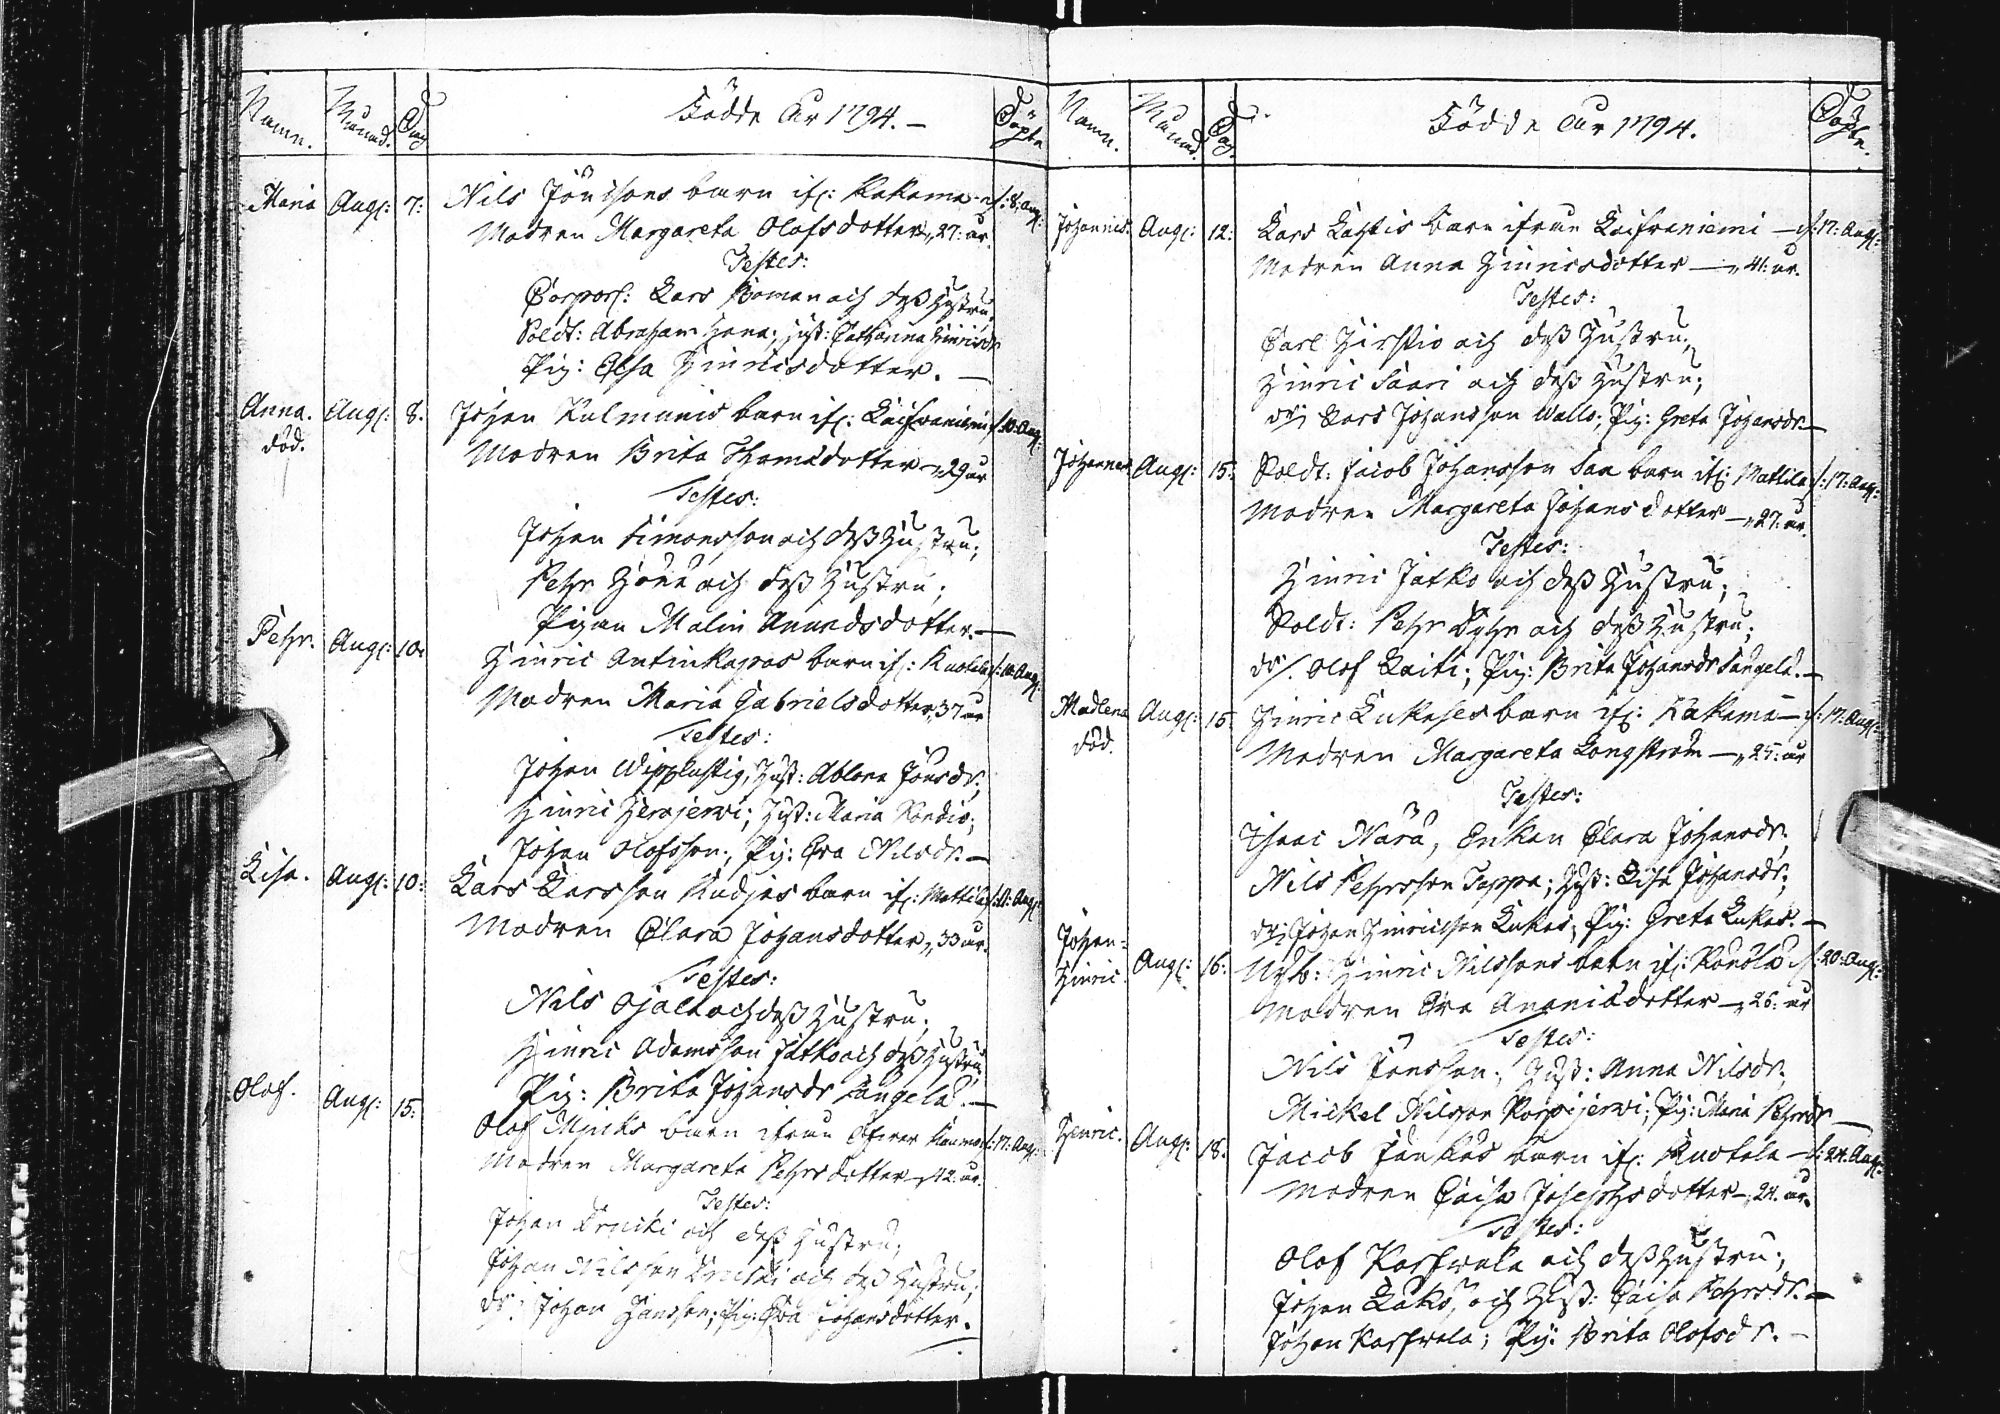 Namn. Månad. Dag Födde År 1794. — Döpte
Maria Aug: 7: Nils Jönssons barn if: Kakama — d: 8: Aug:
Modren Margareta Olofsdotter — 27: år.
Testes:
Corporl: Lars Boman och deß Hustru,
Soldt: Abraham Hane; Hust: Catharina Hinricsdr
Pig: Elsa Hinricsdotter. —
Anna. Aug: 8. Johan Kulmunis barn if: Kaisraniemi d: 10: Aug:
död. Modren Brita Thomædotter — 29 år
Testes:
Johan Simonsson och deß Hustru;
Pehr och deß Hustru;
Pigan Malin Anundsdotter. —
Pehr. Aug: 10: Hinric Antinkapos barn if: Kuotala d: 10: Aug:
Modren Maria Gabrielsdotter, 37 år
Testes:
Johan Wipplustig, Hust: Ablona Jönsdr;
Hinric Herajerwi; Hust: Maria
Johan Olofsson; Pig: Eva Nilsdr. —
Lisa. Aug: 10: Lars Larsson Kudjas barn if: Mattila d: 11: Aug:
Modren Clara Johansdotter, 33 år.
Testes:
Nils Ojala och deß Hustru;
Hinric Adamsson Jatko och deß Hustru
Pig: Brita Johansdr Sangela. —
Olof. Aug: 15: Olof barn ifrån Öfwer d: 17: Aug:
Modren Margareta Pehrsdotter — 42: år.
Testes:
Johan och deß Hustru;
Johan Nilsson och deß Hustru;
dr: Johan Hansson; Pig: Eva Johansdotter.
Namn. Månad. Dag. Födde År 1794. Döpte.
Johannes. Aug: 12: Lars barn ifrån Kaisraniemi — d: 17: Aug:
Modren Anna Hinricsdotter — 41: år.
Testes:
Carl Hirstio och deß Hustru;
Hinric Saari och deß Hustru;
dr: Lars Johansson Walla; Pig: Greta Johansdr. —
Johannes Aug: 15: Soldt: Jacob Johansson Saa barn if: Mattila d: 17: Aug:
Modren Margareta Johansdotter — 27: år.
Testes:
Hinric Jatko och deß Hustru;
Soldt: Pehr och deß Hustru;
dr: Olof Laiti; Pig: Brita Johansdr Sangela. —
Madlena Aug: 15: Hinric Lukases barn if: Kakama — d: 17: Aug:
död. Modren Margareta Longström — 25: år
Testes:
Isaac Nara, Enkan Clara Johansdr;
Nils Pehrsson Tappa; Hust: Lisa Johansdr;
dr: Johan Hinricsson Lukas; Pig: Greta Lukas. —
Johan-
Hinric Aug: 16: Nyb: Hinric Nilssons barn if: d: 20: Aug:
Modren Eva Ananiædotter — 26: år
Testes:
Nils Jönsson; Hust: Anna Nilsdr;
Mickel Nilsson Korpijerwi; Pig: Maria Pehrsdr —
Hinric. Aug: 18. Jacob barn if: Kuotala — d: 24: Aug:
Modren Caisa Josephsdotter — 24: år.
Testes:
Olof Karswala och deß Hustru;
Johan och Hust: Caisa Pehrsdr. —
Johan Karswala; Pig: Brita Olofsdr. —